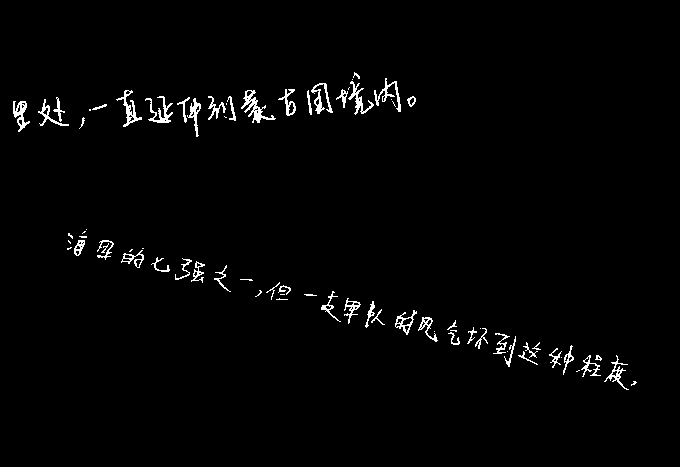 里处,一直延伸到蒙古国境内。
海军的七强之一,但一支军队的风气坏到这种程度,